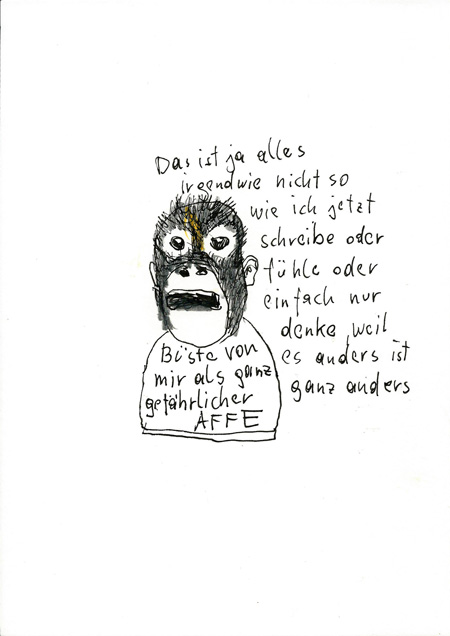 Das ist ja alles
irgendwie nicht so
wie ich jetzt
schreibe oder
fühle oder
einfach nur
denke, weil
es anders ist
ganz anders
Büste von
mir als ganz
gefährlicher
AFFE